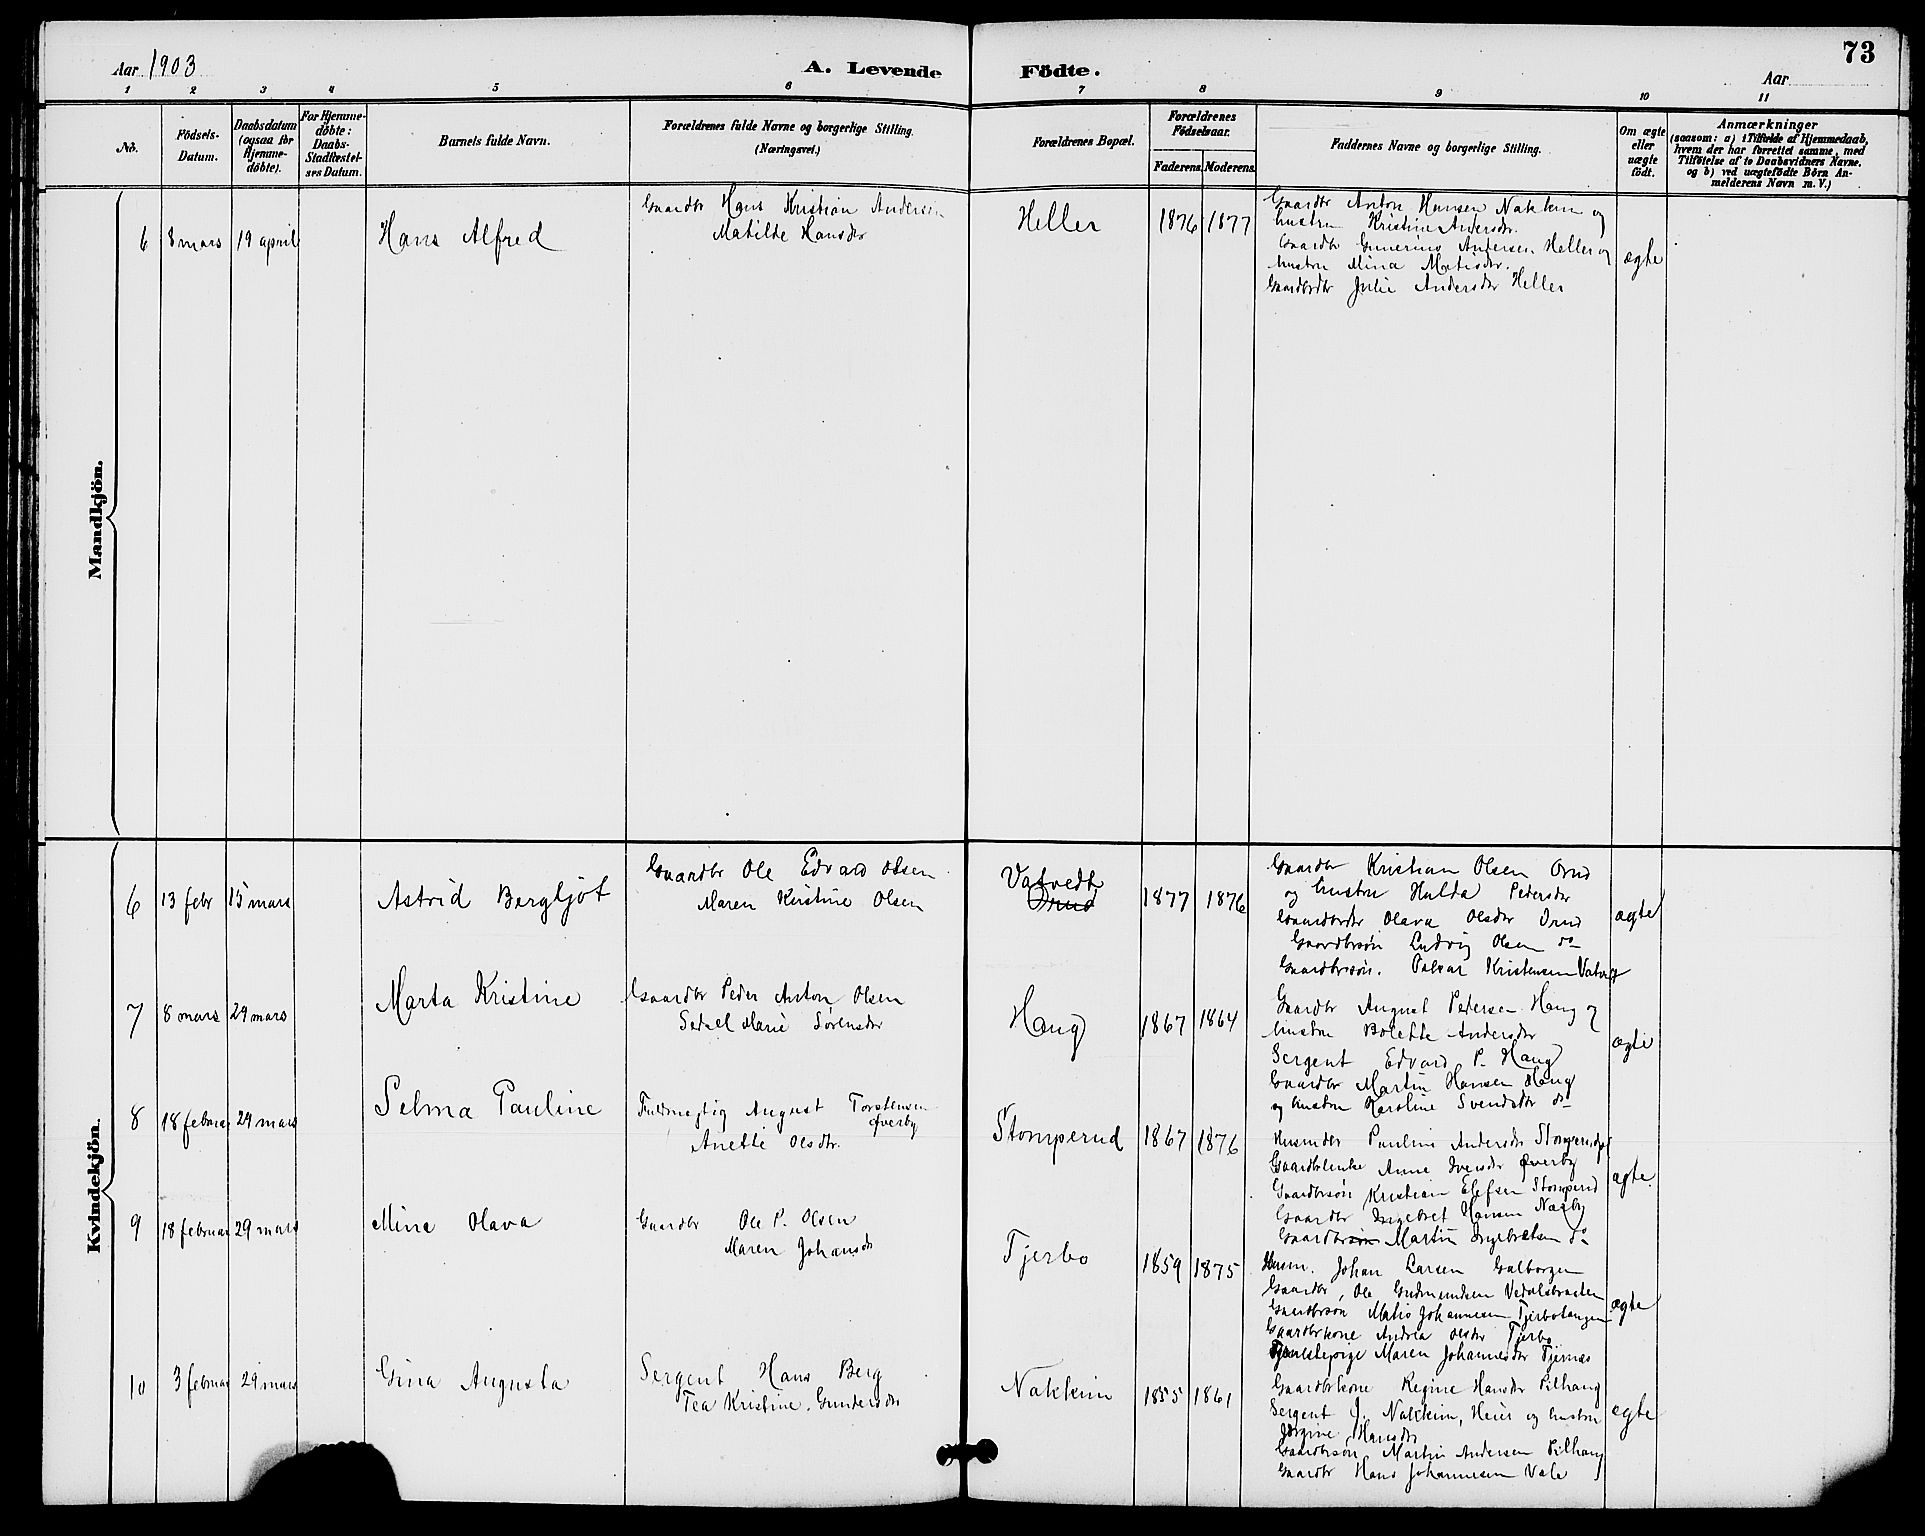 Aar 1903
A. Levende
Födte.
Aar
73
1 2 3 4 5 6 7 8 9 10 11
No.
Födsels-
Datum.
Daabsdatum
(ogsaa for
Hjemme-
døbte).
For Hjemme-
døbte:
Daabs-
Stadfæstel-
ses Datum.
Barnets fulde Navn.
Forældrenes fulde Navne og borgerlige Stilling.
(Næringsvei.)
Forældrenes Bopæl.
Forældrenes
Födselsaar.
Faderens. Moderens.
Faddernes Navne og borgerlige Stilling.
Om ægte
eller
uægte
födt.
Anmærkninger
(saasom: a) i Tilfælde af Hjemmedaab,
hvem der har forrettet samme, med
Tilföielse af to Daabsvidners Navne,
og b) ved uægtefödte Börn An-
melderens Navn m. V.)
Mandkjön.
6 8 mars 19 april
Hans Alfred
Gaardbr Hans Kristian Andersen
Matilde Hansdr
Heller
1876 1877
Gaardbr Anton Hansen Nakkim og
hustru Kristine Andersdr.
Gaardbr Gunerius Andersen Heller og
hustru Mina Matisdr.
Gaardbrdtr Julie Andersdr Heller
ægte
Kvindekjön.
6 13 febr 15 mars
Astrid Bergljot
Gaardbr Ole Edvard Olsen
Maren Kirstine Olsen
Vatvedt
Orud
1877 1876
Gaardbr Kristian Olsen Orud
og hustru Hulda Pedersdr
Gaardbrdtr Olava Olsdr Orud
Gaardbrsön Ludvig Olsen do
Gaardbrsön. Kristensen Vatvedt
ægte
7 8 mars 29 mars
Marta Kristine
Gaardbr Peder Anton Olsen
Marie Sørensdr
Haug
1867 1864
Gaardbr August Pedersen Haug og
hustru Bolette Andersdr
Sergent Edvard P. Haug
Gaardbr Martin Hansen Haug
og hustru Karoline Svendsdtr do
ægte
8 18 februar 29 mars
Selma Pauline
Fuldmegtig August Torstensen
Øverby
Anette Olsdtr.
Stomperud
1867 1876
Pauline Andersdr Stomperud
Gaardbrenke Anne Iversdr Øverby
Gaardbrsön Kristian Elefsen Stomperud
Gaardbr Ingebret Hansen Næsby
Gaardbrsön Martin Ingebretsen do
ægte.
9 18 februar 29 mars
Mina Olava
Gaardbr Ole P. Olsen
Maren Johansdr
Tjerbo
1859 1875
Husm. Johan Larsen
Gaardbr, Ole Gudmundsen Vedalsbraaten
Gaardbrsön Matis Johannesen Tjerbotangen
Gaardbrkone Andrea Olsdr Tjerbo
Maren Johannesdr Tjernes
ægte
10 3 februar 29 mars
Gina Augusta
Sergent Hans Berg
Tea Kristine. Gundersdr
Nakkim
1855 1861
Gaardbrkone Regine Hansdr Pilhaug
Sergent J. Nakkim, Heier og hustru
Jörgine Hansdr
Gaardbrsön Martin Andersen Pilhaug
Gaardbr Hans Johannesen Vale
ægte